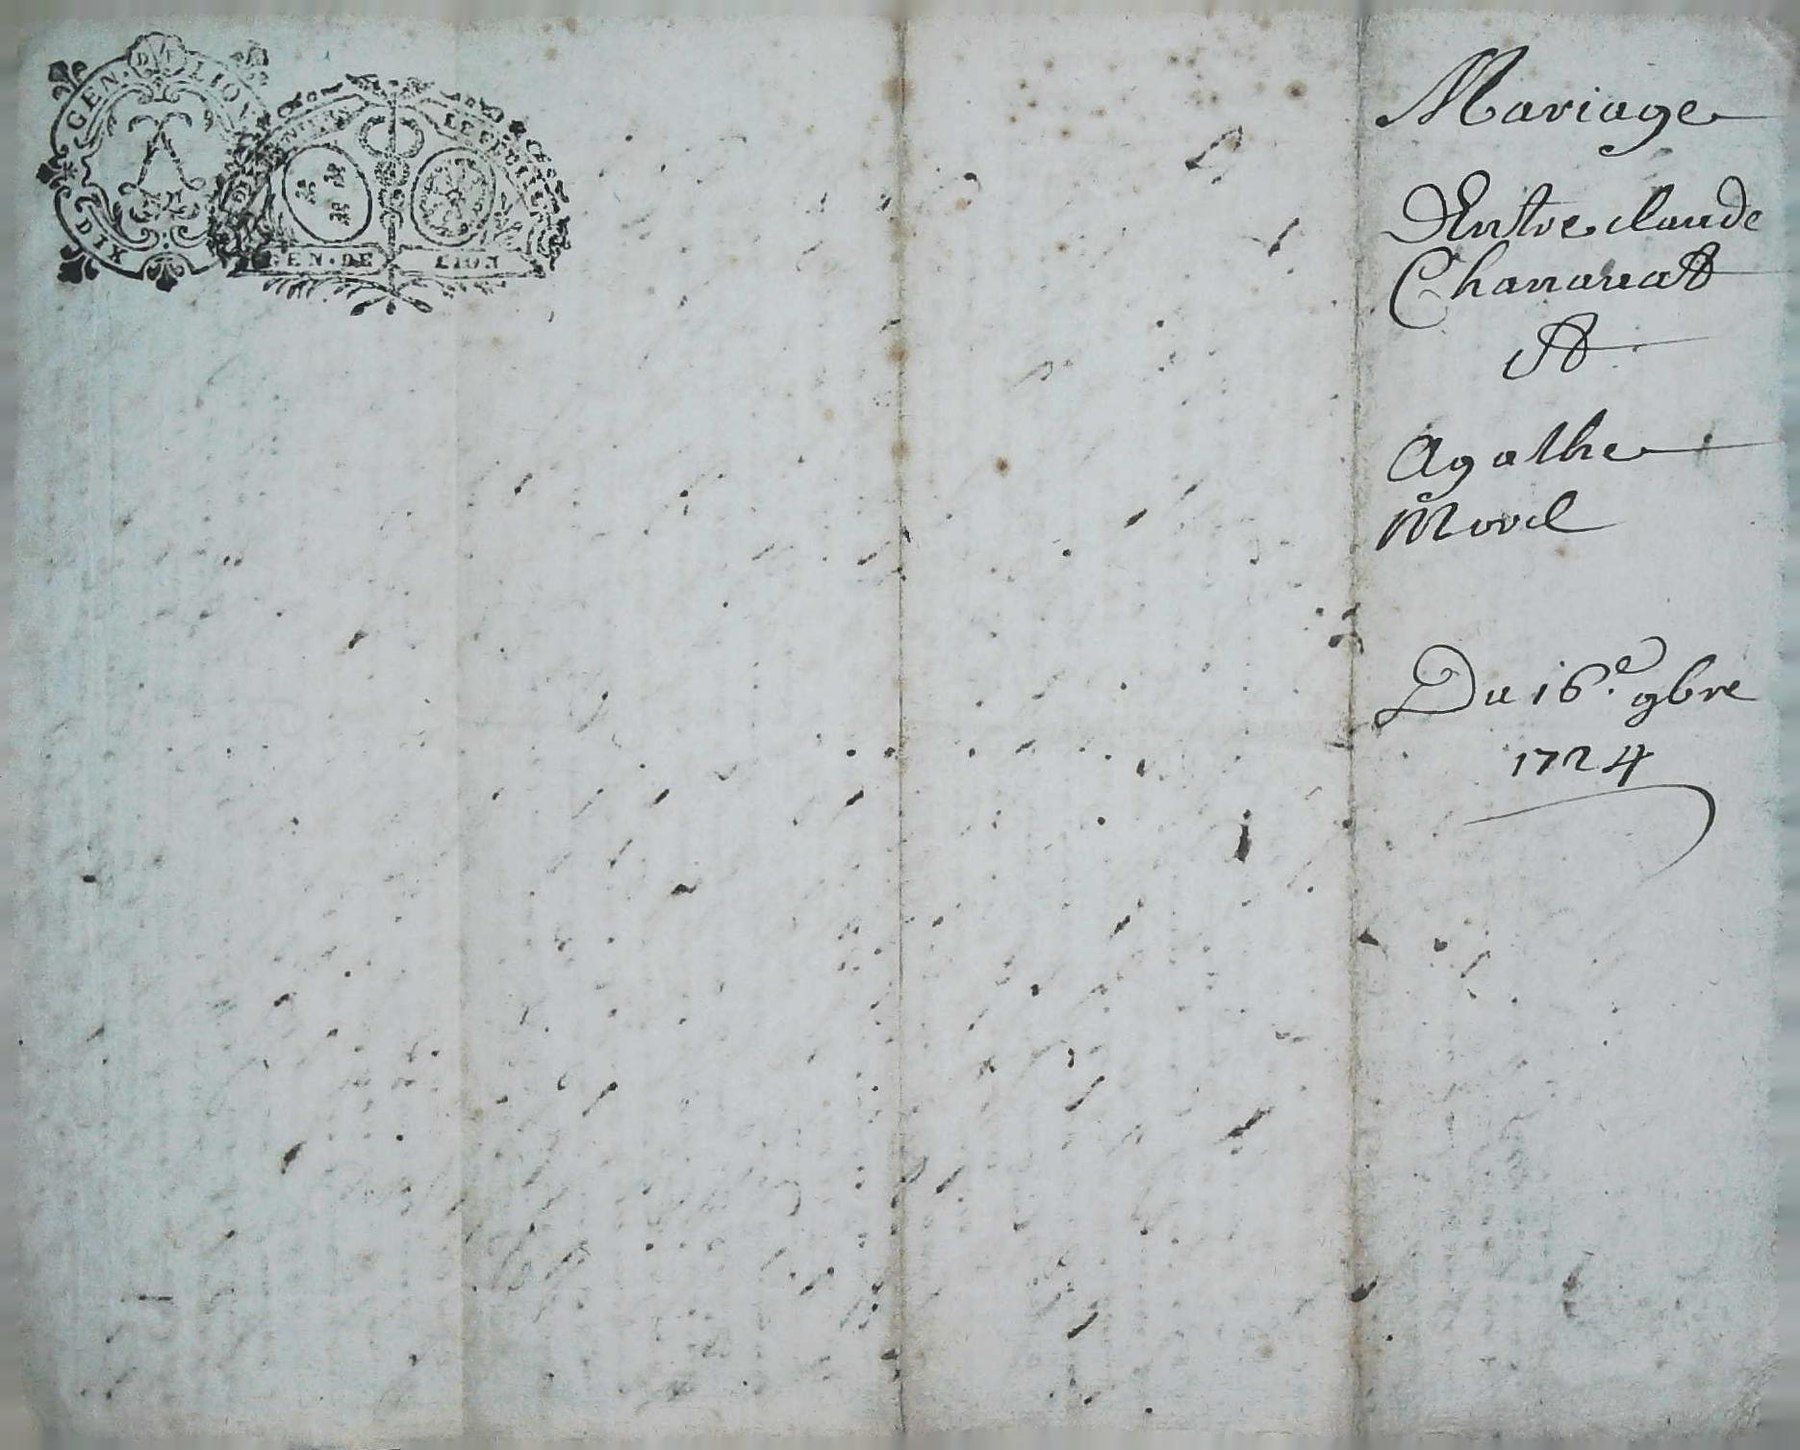 GEN. DE LION
DIX
GEN. DE LION
Mariage
Entre claude
Chanauat
Et
Agathe
Morel
Du 16.e 9bre
1724